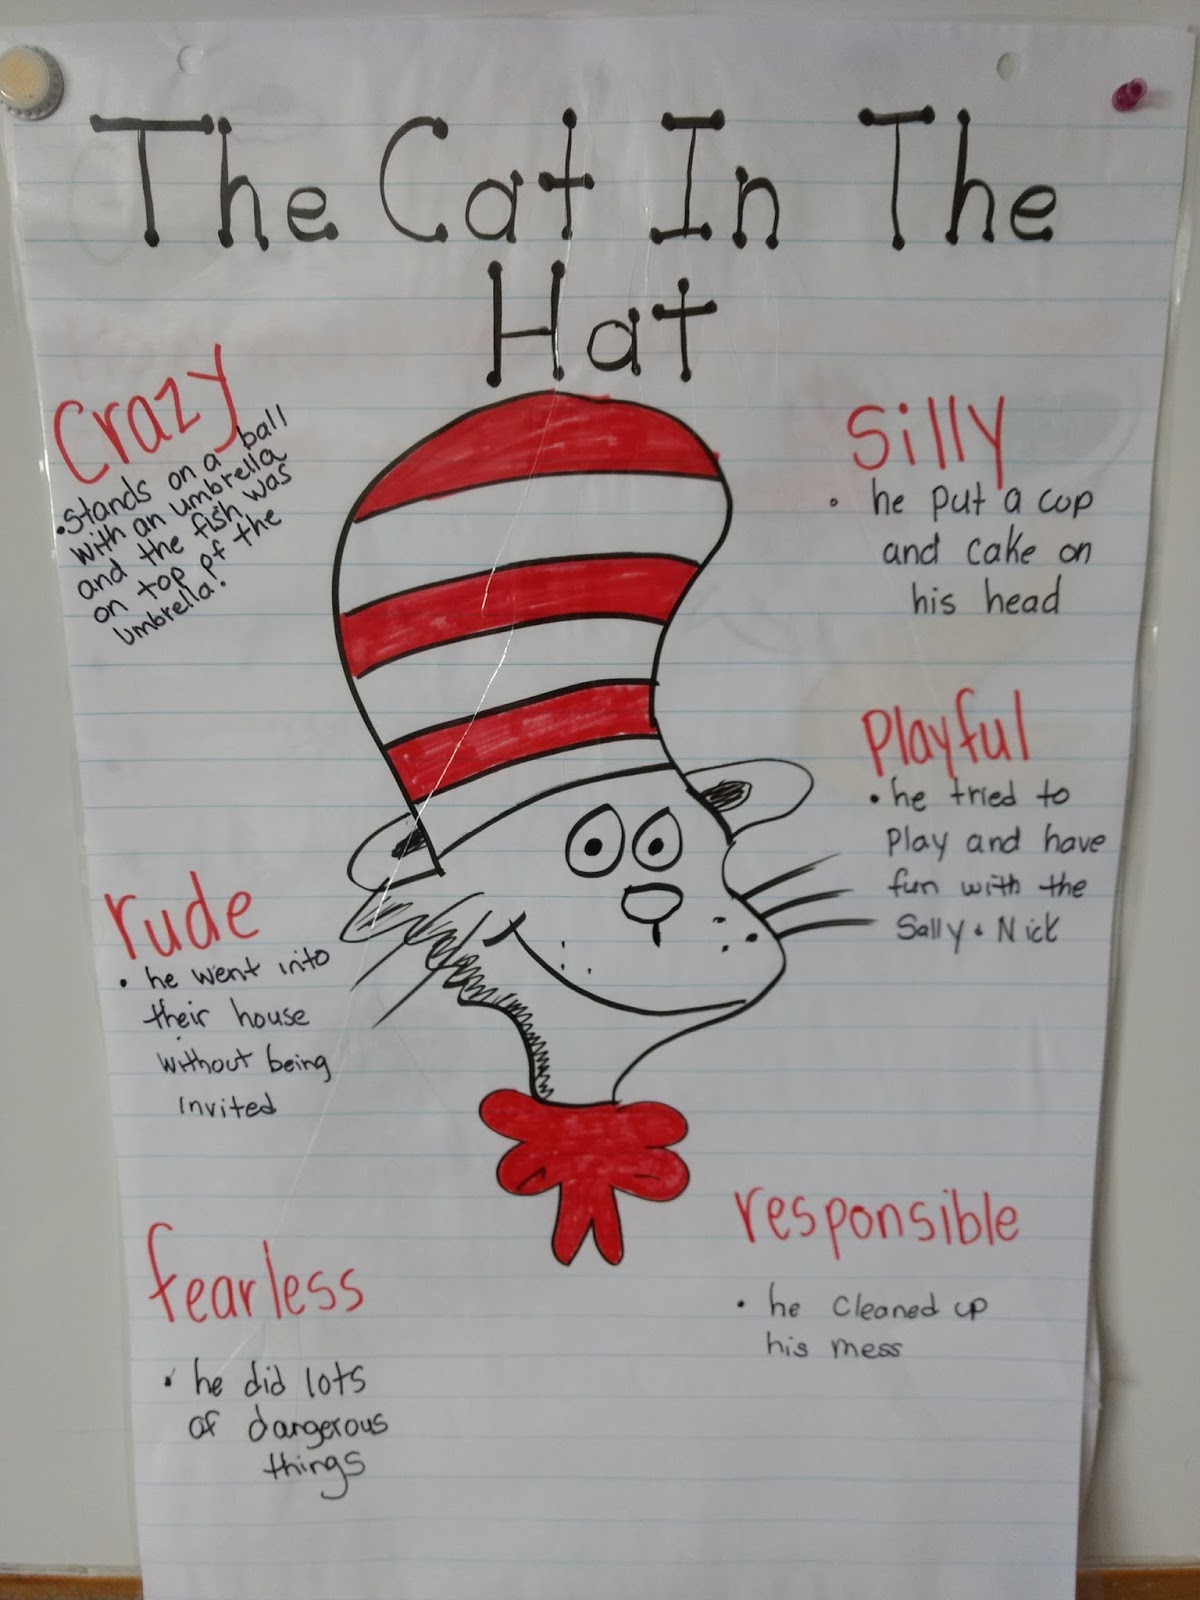 The Cat In The
Hat
Crazy
• Stands on a ball
with an umbrella
and the fish was
on top of the
umbrella!
Silly
• he put a cup
and cake on
his head
Playful
• he tried to
play and have
fun with the
Sally + Nick
rude
• he went into
their house
without being
invited
fearless
• he did lots
of dangerous
things
responsible
• he cleaned up
his mess